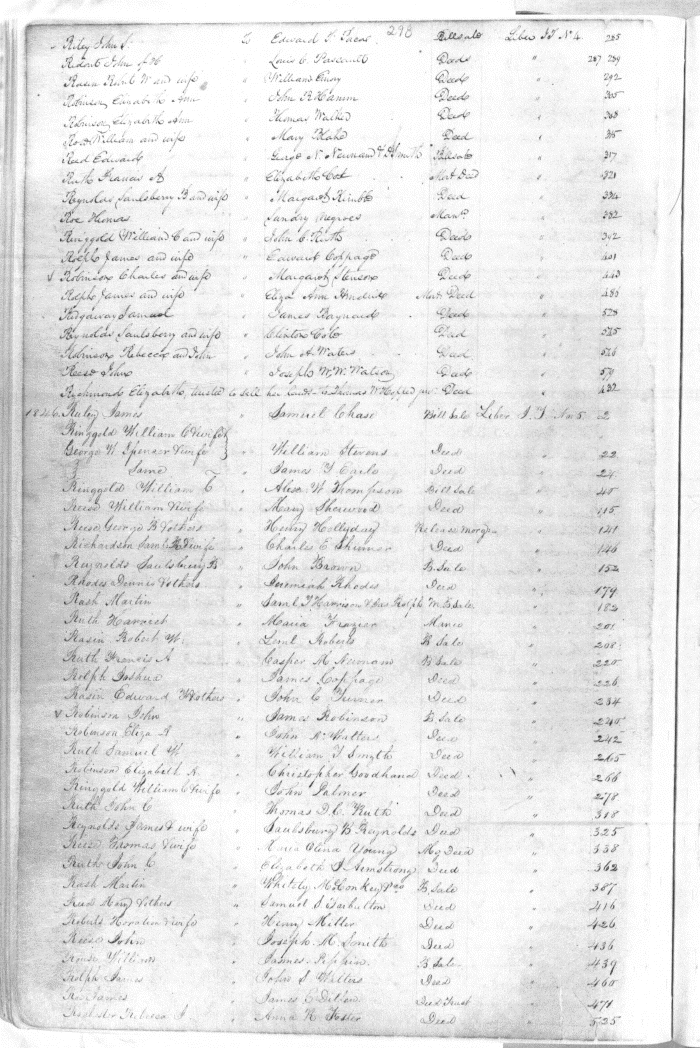 298
Riley John S. To Edward T. Bill sale Liber JT No 4 285
Ridout John of H " Louis C. Pascault Deed " 287 289
Rasin Robt W and wife " William Deed " 292
Robinson Elizabeth Ann " John R Hamm Deed " 305
Robinson Elizabeth Ann " Thomas Walker Deed " 308
William and wife " Mary Blake Deed " 315
Reed Edward " N. Newnam & Bill sale " 317
Ruth Francis A " Elizabeth Mort Deed " 321
Reynolds Saulsberry B and wife " Margaret Kimble Deed " 334
Roe Thomas " Sundry Negroes " 382
Ringgold William C and wife " John C Ruth Deed " 392
Rolph James and wife " Edward Coppage Deed " 401
Robinson Charles and wife " Margaret Deed " 443
Rolph James and wife " Eliza Ann Mort Deed " 485
Ridgaway Samuel " James Baynard Deed " 528
Reynolds Saulsberry and wife " Clinton Deed " 575
Robinson Rebecca and John " John A Waters Deed " 576
Reese John " Joseph W. W. Watson Deed " 579
Richmond Elizabeth, trustee to sell her lands to Thomas W Hopper Deed " 432
1846 James " Samuel Chase Bill Sale Liber J. T No 5 2
Ringgold William C & wife &
George W. Spencer & wife } " William Stevens Deed " 22
Same " James T Earle Deed " 24
Ringgold William C " W Thompson Bill Sale " 40
Reese William & wife " Mary Sherwood Deed " 115
Reese George B & others " Henry Hollyday Release Morge " 141
Richardson Saml & wife " Charles E Skinner Deed " 146
Reynolds Saulsbury B " John Brown B. Sale " 152
Rhodes & others " Jeremiah Rhodes Deed " 179
Rash Martin " Saml T Harrison & Jas Rolph B Sale " 182
Ruth Harriet " Maria Frazier " 201
Rasin Robert W. " Leml Roberts B Sale " 208
Ruth Francis A " Casper M Newnam B Sale " 220
Rolph Joshua " James Coppage Deed " 226
Rasin Edward & others " John C Deed " 234
Robinson John " James Robinson B Sale " 240
Robinson Eliza A " John A Walters Deed " 242
Ruth Samuel W " William T Smyth Deed " 265
Robinson Elizabeth A. " Christopher Goodhand Deed " 266
Ringgold William C & wife " John Palmer Deed " 278
Ruth John C " Thomas D. C. Ruth Deed " 318
Reynolds James & wife " Saulsbury B Reynolds Deed " 325
Reese Thomas & wife " Maria Young Mg Deed " 338
Ruth John C " Elizabeth Armstrong Deed " 362
Rash Martin " Whitely McConkey B Sale " 387
Reed & others " Samuel S Deed " 416
Roberts Horatio & wife " Henry Deed " 426
Reese John " Joseph M. Smith Deed " 436
Rouse William " James Pippin B Sale " 439
Rolph James " John S Walters Deed " 460
Roe James " James C Deed Trust " 471
Rebecca J " Anna K Foster Deed " 525